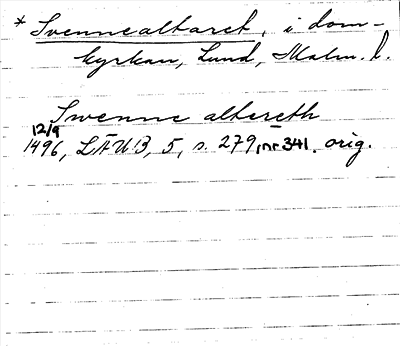 * Svennealtaret, i dom-
kyrkan, Lund, Malm. l.
Swenne altereth
12/9
1496, LÄUB, 5, s. 279, nr 341. orig.